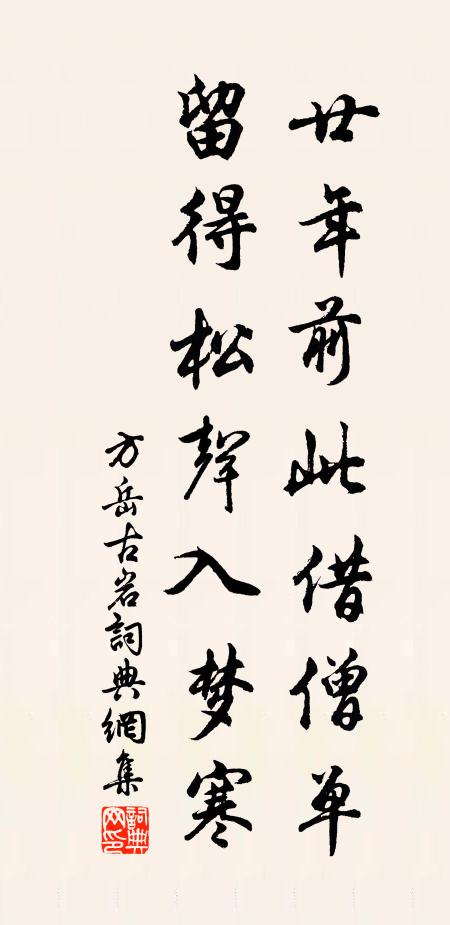 廿年前此借僧单
留得松聲入梦寒
方岳古岩詞典網集
詞典网印